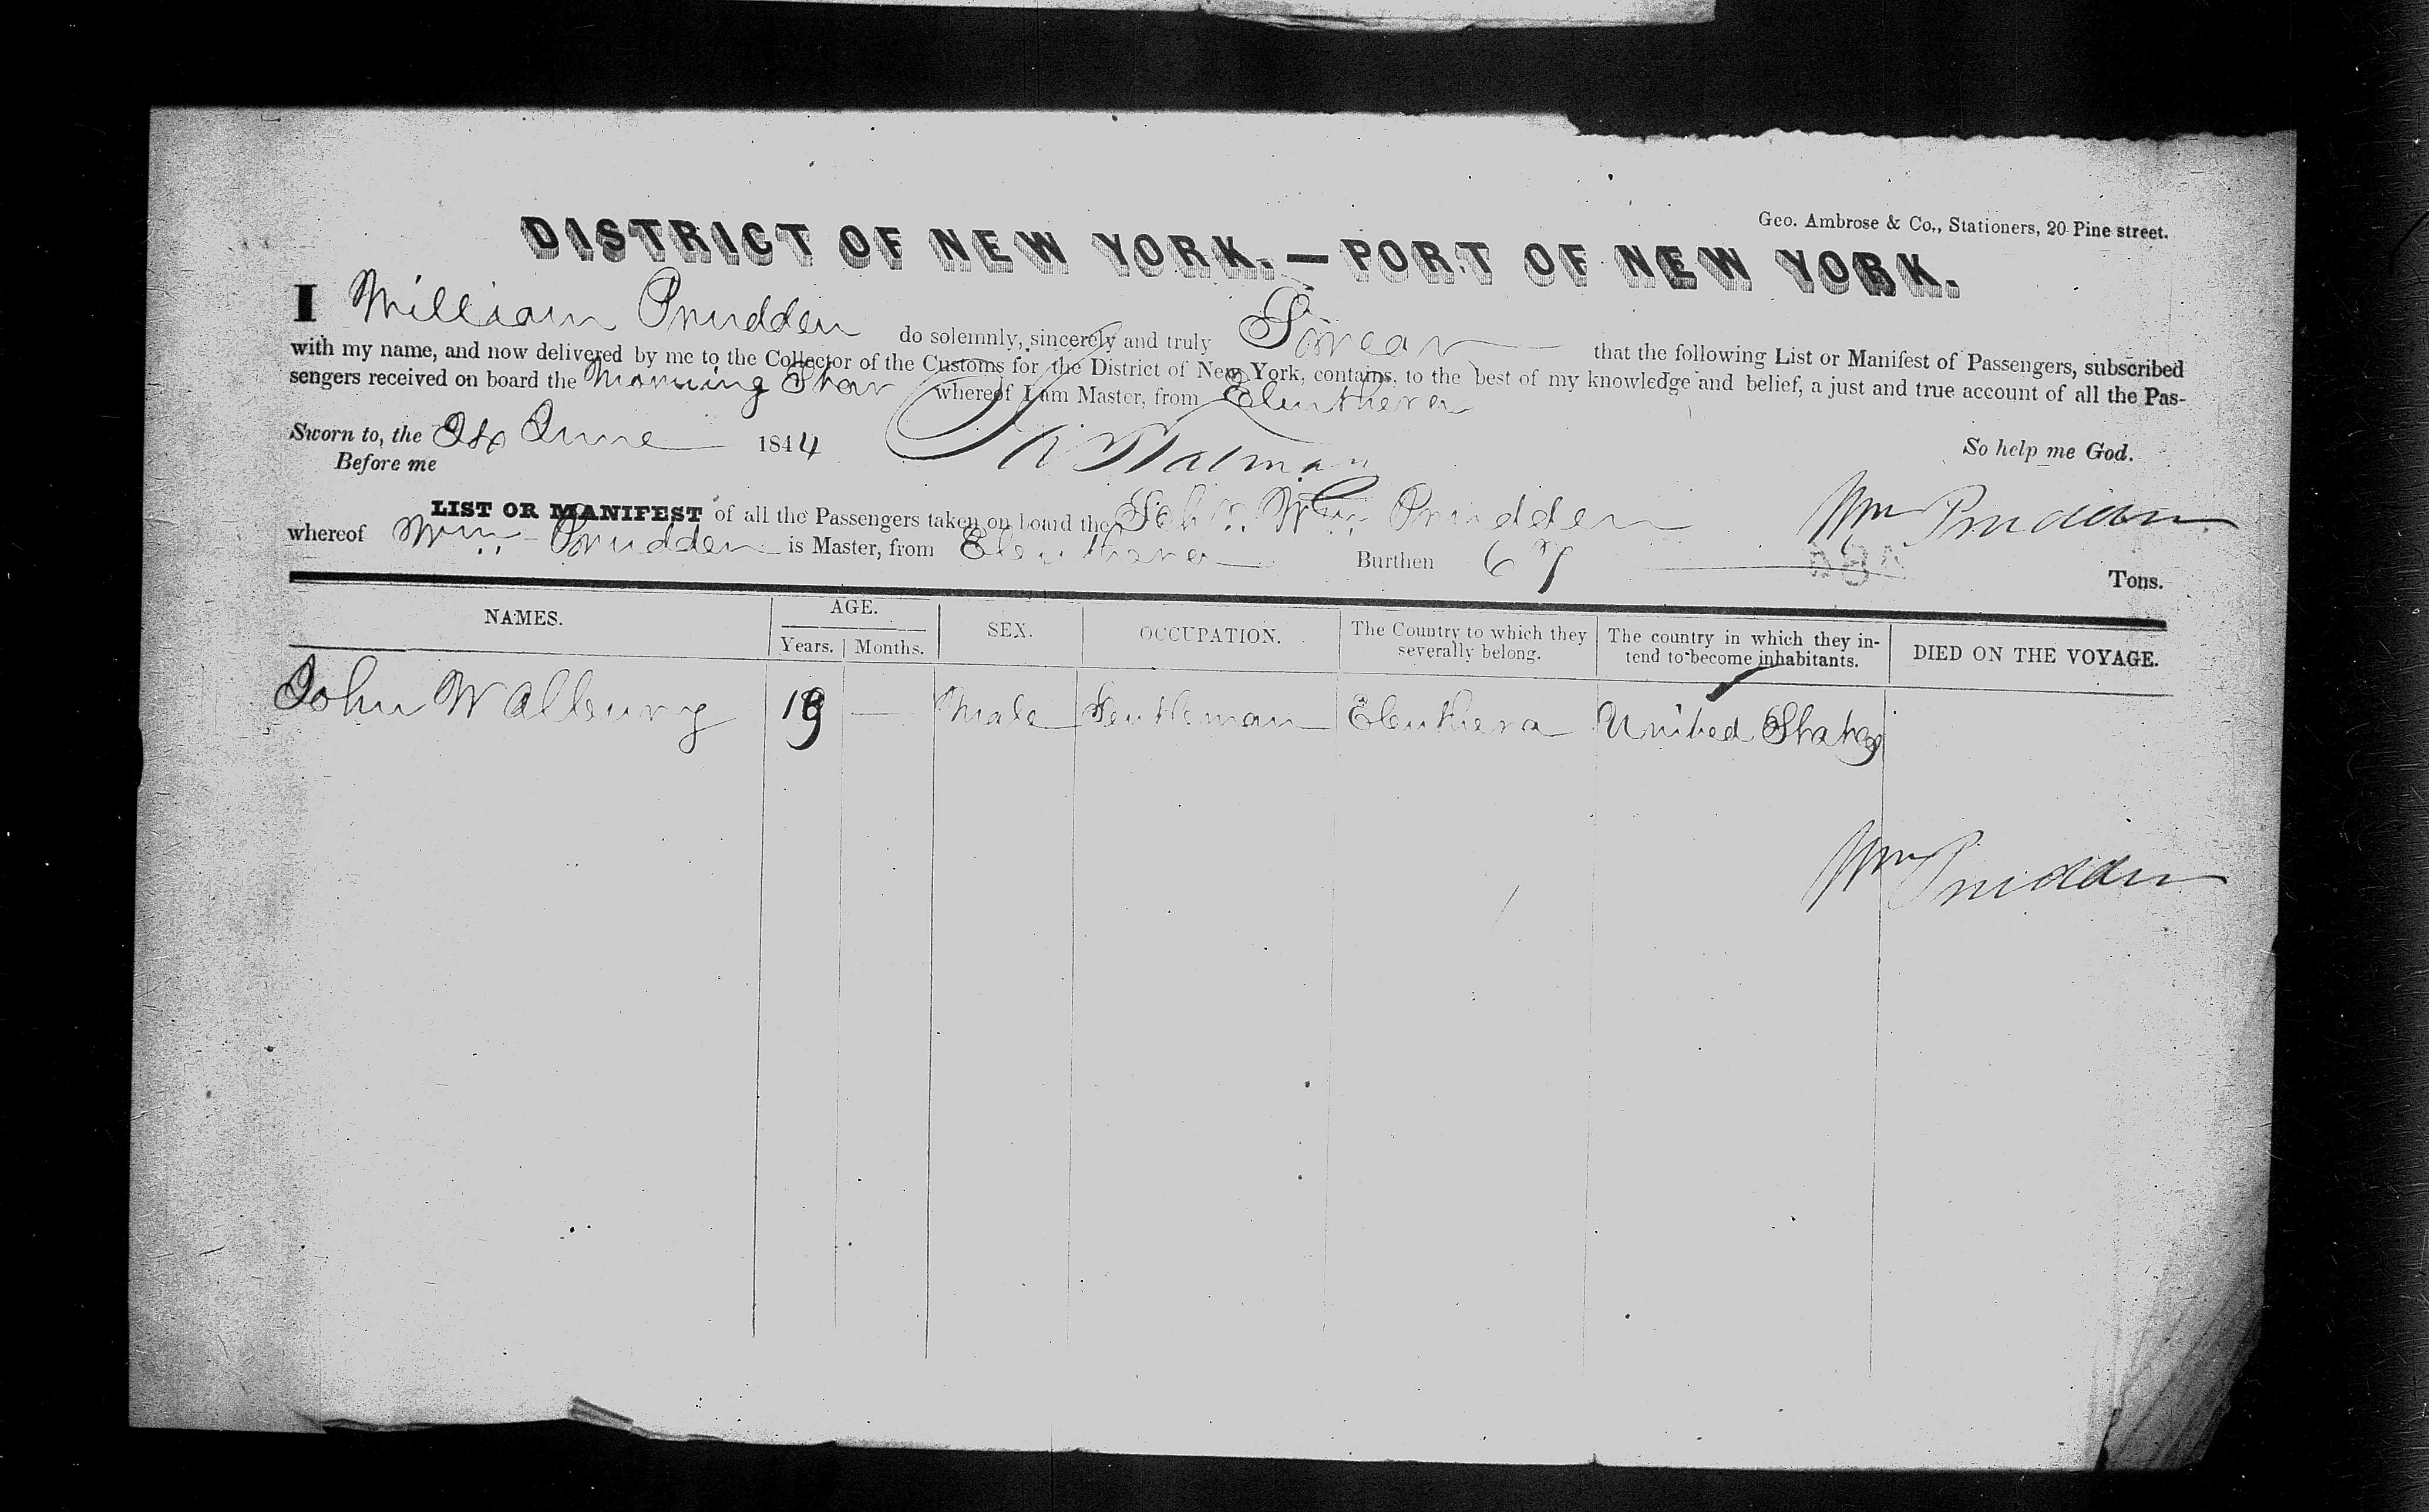 Geo. Ambrose & Co., Stationers, 20 Pine street.
DISTRICT OF NEW YORK. — PORT OF NEW YORK.
I William Prudden do solemnly, sincerely and truly Swear that the following List or Manifest of Passengers, subscribed
with my name, and now delivered by me to the Collector of the Customs for the District of New York, contains, to the best of my knowledge and belief, a just and true account of all the Pas-
sengers received on board the Morning Star whereof I am Master, from Eleuthera
Sworn to, the June 1844 So help me God.
Before me
Wm Prudden
LIST OR MANIFEST of all the Passengers taken on board the Schr. Wm Prudden
whereof Wm Prudden is Master, from Eleuthera Burthen 67 Tons.
NAMES. AGE. SEX. OCCUPATION. The Country to which they severally belong. The country in which they in-tend to become inhabitants. DIED ON THE VOYAGE.
Years. Months.
John Walburg — Male Gentleman Eleuthera United States
Wm Prudden